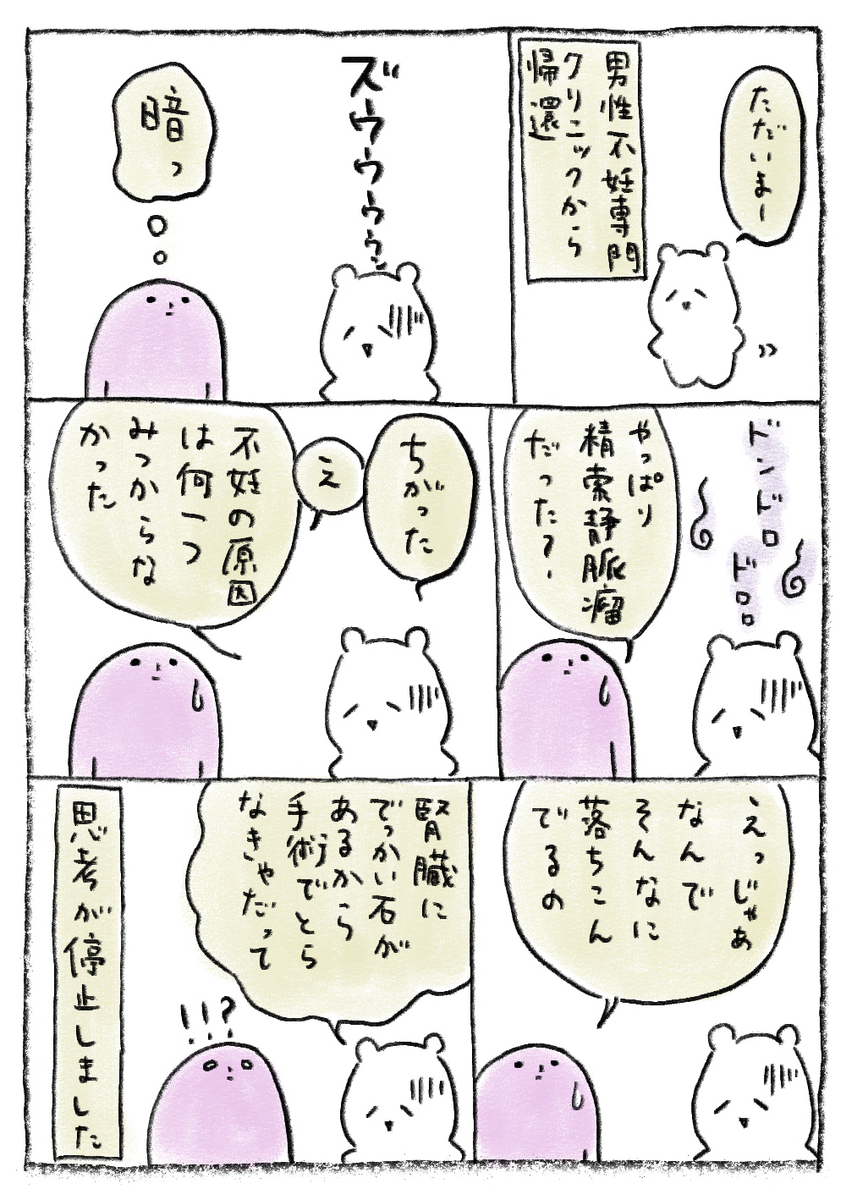 ただいまー
男性不妊専門
クリニックから
帰還
ズゥゥゥゥゥン
暗っ
ドンドロ
ドロロ
やっぱり
精索静脈瘤
だった？
ちがった
え
不妊の原因
は何一つ
みつからな
かった
えっじゃあ
なんで
そんなに
落ちこん
でるの
腎臓に
でっかい石が
あるから
手術でとら
なきゃだって
!!?
思考が停止しました